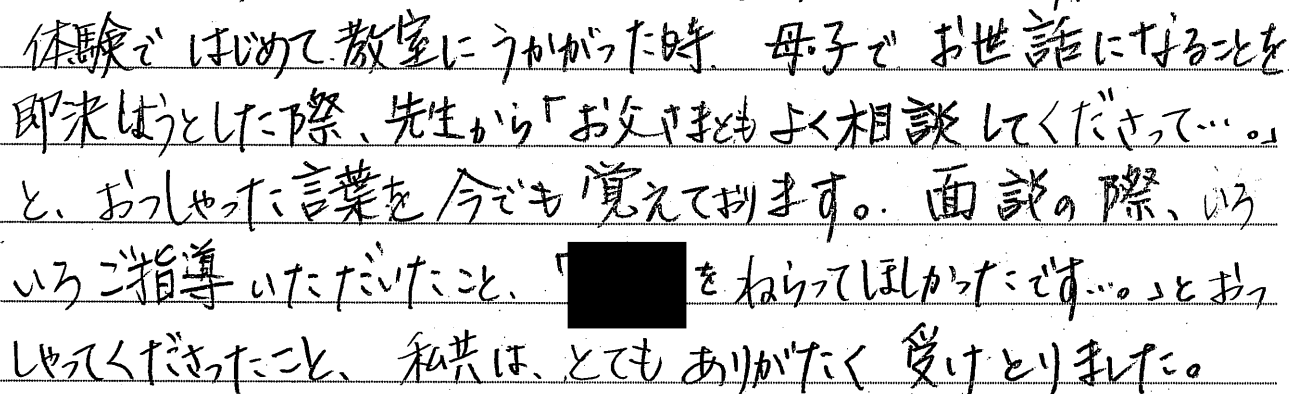 体験で はじめて教室に うかがった時、母子で お世話になることを
即決しようとした際、先生から「お父さまとも よく相談してくださって…。」
と、おっしゃった言葉を 今でも 覚えております。面談の際、いろ
いろご指導いただいたこと、「 をねらってほしかったです…。」とおっ
しゃってくださったこと、私共は、とても ありがたく 受けとりました。